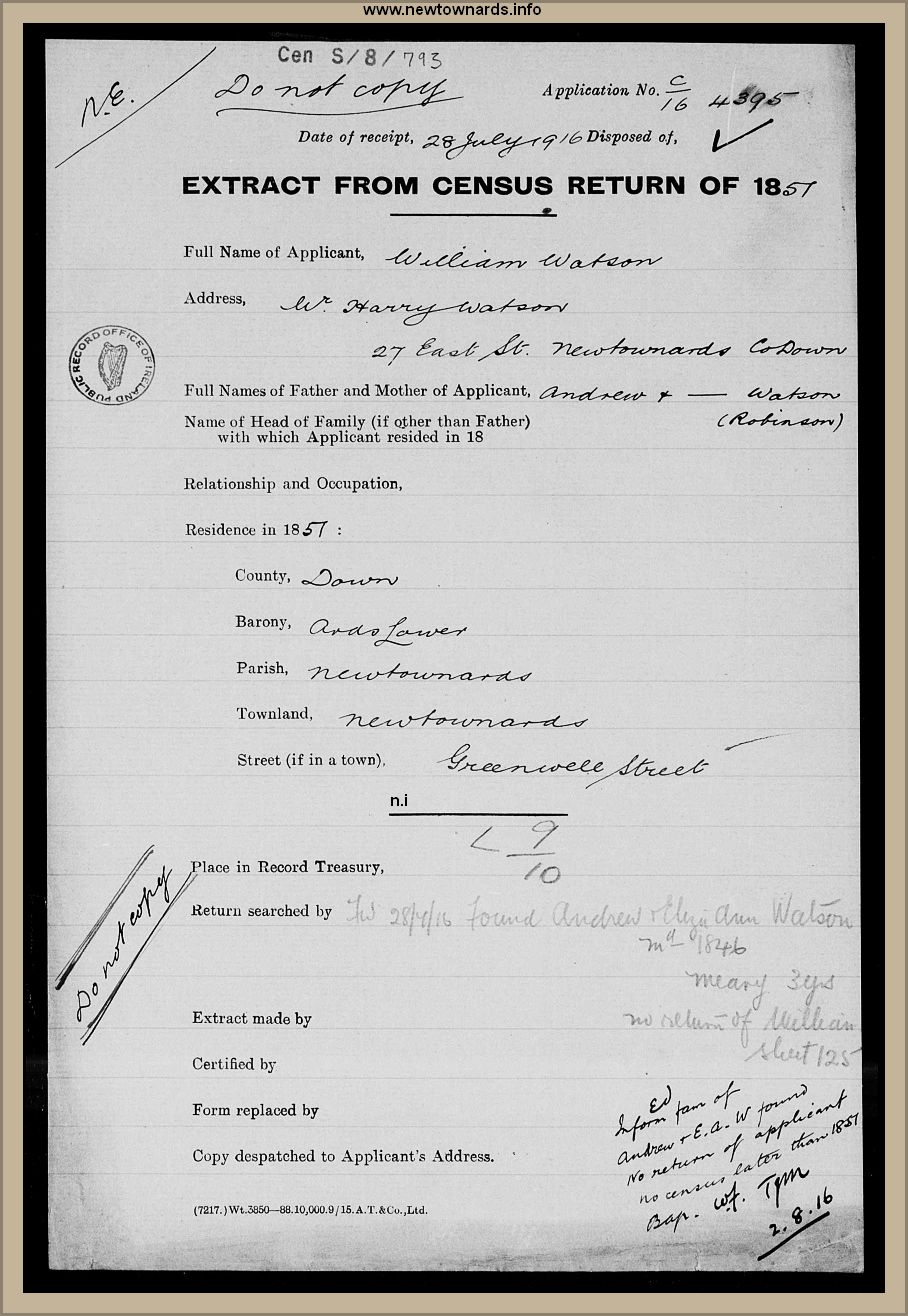 www.newtownards.info
Cen S/8/793
N.E.
Do not copy
Application No. C/16 4395
Date of receipt, 28 July 1916 Disposed of,
EXTRACT FROM CENSUS RETURN OF 1851
Full Name of Applicant, William Watson
Address, Mr. Harry Watson
27 East St. Newtownards Co Down
PUBLIC RECORD OFFICE OF IRELAND
Full Names of Father and Mother of Applicant, Andrew + — Watson
Name of Head of Family (if other than Father) (Robinson)
with which Applicant resided in 18
Relationship and Occupation,
Residence in 1851 :
County, Down
Barony, Ards Lower
Parish, Newtownards
Townland, Newtownards
Street (if in a town), Greenwell Street
n.i
9
10
Place in Record Treasury,
Do not copy
Return searched by 28/7/16 Found Andrew + Eliza Ann Watson
md 1846
Meary 3 yrs
Extract made by no return of William
sheet 125
Certified by
Form replaced by
Copy despatched to Applicant's Address.
Ed
Inform fam of
Andrew + E. A. W found
No return of applicant
no census later than 1851
Bap. wf.
2.8.16
(7217.)Wt.3850—88.10,000.9/15.A.T.&Co.,Ltd.